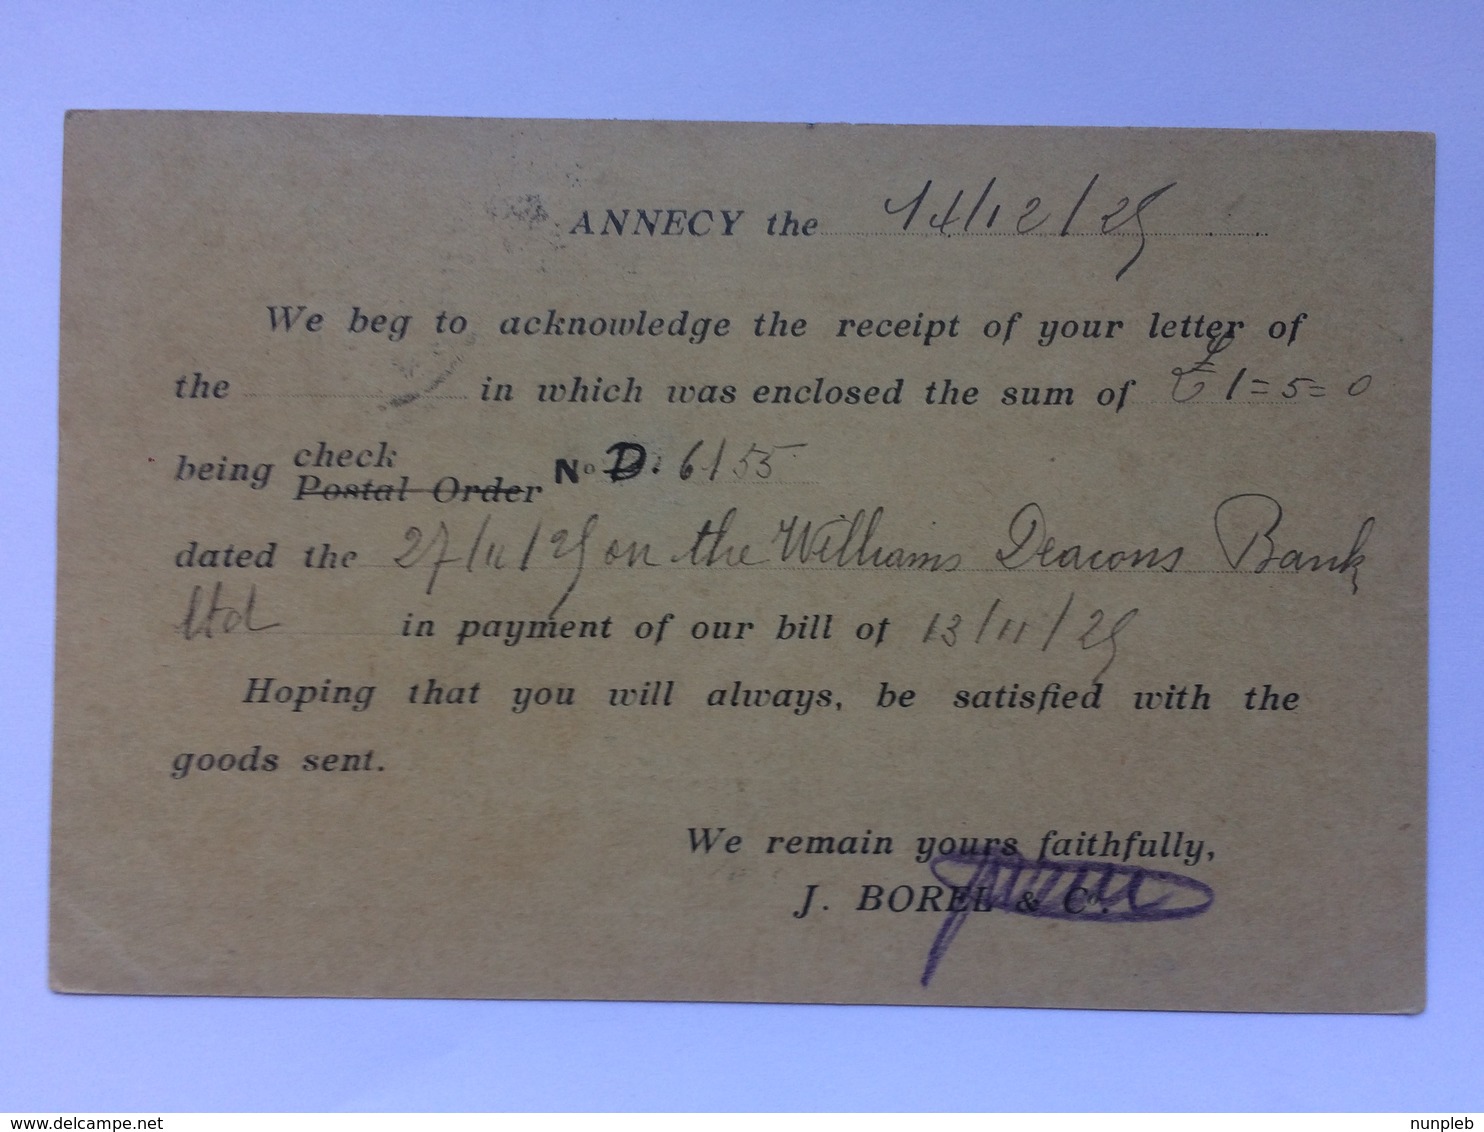 ANNECY the 14/12/25
We beg to acknowledge the receipt of your letter of
the in which was enclosed the sum of £ 1=5=0
being check
Postal Order No D. 6155
dated the 27/11/25 on the Williams Deacons Bank
ltd in payment of our bill of 13/11/25
Hoping that you will always, be satisfied with the
goods sent.
We remain yours faithfully,
J. BOREL & Co.
delcampe.net
nunpleb